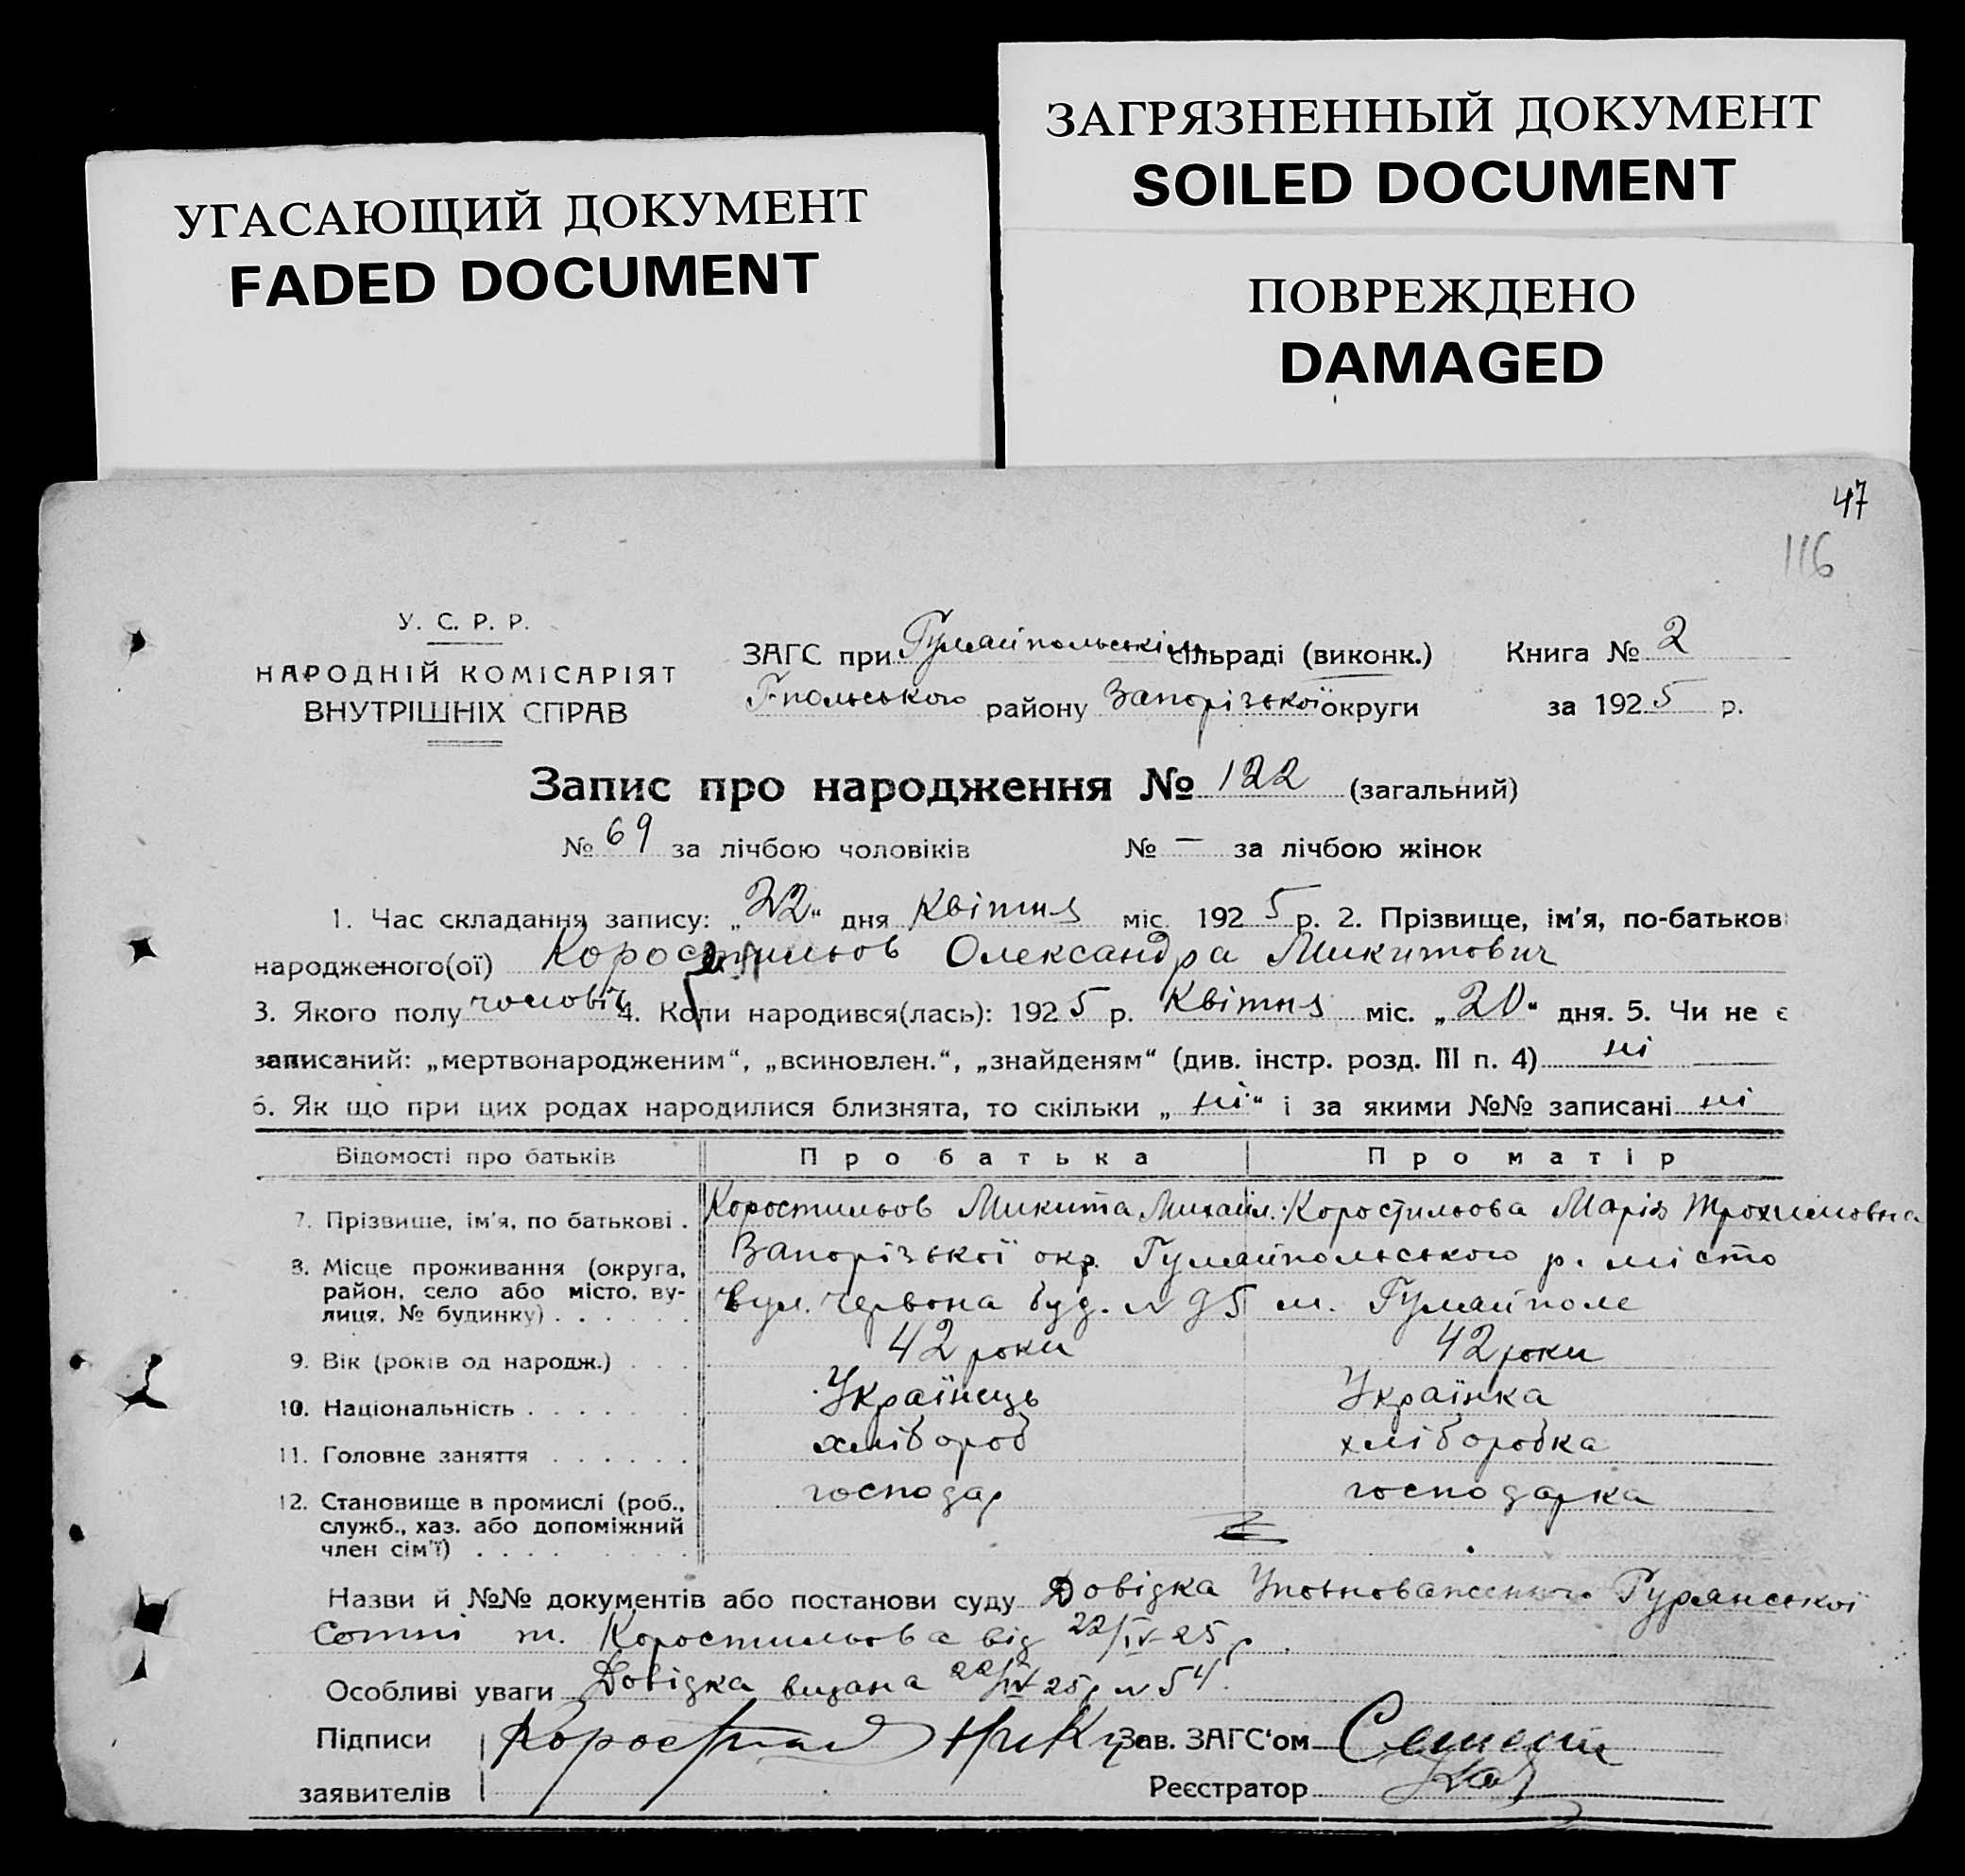 ЗАГРЯЗНЕННЫЙ ДОКУМЕНТ
SOILED DOCUMENT
УГАСАЮЩИЙ ДОКУМЕНТ
FADED DOCUMENT
ПОВРЕЖДЕНО
DAMAGED
47
116
У. С. Р. Р.
НАРОДНІЙ КОМІСАРІЯТ
ВНУТРІШНІХ СПРАВ
ЗАГС при Гуляйпольській сільраді (виконк.) Книга № 2
Г-польського району Запорізької округи за 1925 р.
Запис про народження № 122 (загальний)
№ 69 за лічбою чоловіків № — за лічбою жінок
1. Час складання запису: „22“ дня Квітня міс. 1925 р. 2. Прізвище, ім'я, по-батьков
народженого(ої) Коростильов Олександра Микитович
3. Якого полу чоловіч 4. Коли народився(лась): 1925 р. Квітня міс. „20“ дня. 5. Чи не є
записаний: „мертвонародженим“, „всиновлен.“, „знайденям“ (див. інстр. розд. III п. 4) ні
6. Як що при цих родах народилися близнята, то скільки „ні“ і за якими №№ записані ні
Відомості про батьків Про батька Про матір
7. Прізвище, ім'я, по батькові . Коростильов Микита Михайл. Коростильова Марія Трохимовна
8. Місце проживання (округа, район, село або місто, вулиця, № будинку) . . . . . . Запорізької окр. Гуляйпольського р. місто
вул. Червона буд. № 95 м. Гуляйполе
9. Вік (років од народж.) . . . 42 роки 42 роки
10. Національність . . . . . . Українець Українка
11. Головне заняття . . . . . . хлібороб хліборобка
12. Становище в промислі (роб., служб., хаз. або допоміжний член сім'ї) . . . . господар господарка
Назви й №№ документів або постанови суду Довідка Уповноваженого Гурянської
Сотні т. Коростильова від 22/IV-25 р.
Особливі уваги Довідка видана 22/IV 25 р № 54.
Підписи
заявителів
Зав. ЗАГС'ом
Реєстратор